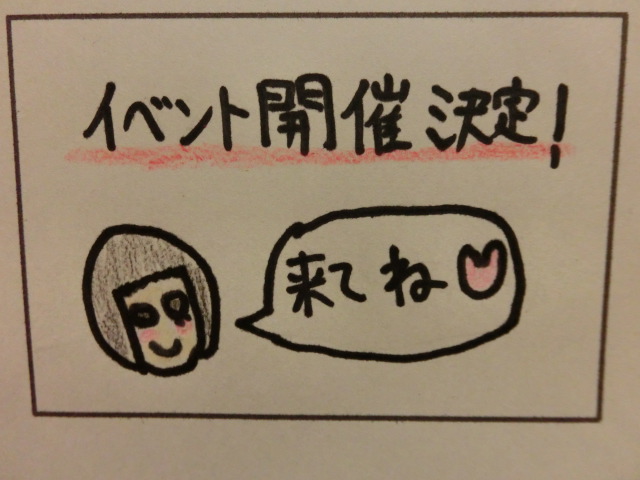 イベント開催決定!
来てね